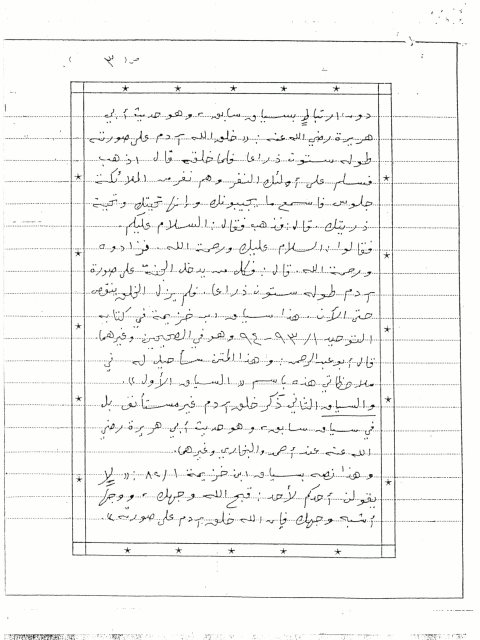 ص ( ٣ )
دون ارتباط بسياق سابق، وهو حديث أبي
هريرة رضي الله عنه: «خلق الله آدم على صورته
طوله ستون ذراعا فلما خلقه قال اذهب
فسلم على أولئك النفر وهم نفر من الملائكة
جلوس فاسمع ما يجيبونك وإنها تحيتك وتحية
ذريتك. قال: فذهب فقال: السلام عليكم.
فقالوا: السلام عليك ورحمة الله. فزادوه
ورحمة الله. قال: فكل من يدخل الجنة على صورة
آدم طوله ستون ذراعا. فلم يزل الخلق ينقص
حتى الآن. هذا سياق ابن خزيمة في كتابه
التوحيد ٩٣/١-٩٤ وهو في الصحيحين وغيرهما.
قال أبو عبد الرحمن: وهذا المتن سأحيل له في
ملاحظاتي هذه باسم «السياق الأول».
والسياق الثاني ذكر خلق آدم غير مستأنق بل
في سياق سابق، وهو حديث أبي هريرة رضي
الله عنه عند أحمد والبخاري وغيرهما.
وهذا نصه بسياق ابن خزيمة ٨٢/١: «لا
يقولن أحدكم لأحد: قبح الله وجهك، ووجها
أشبه وجهك فإن الله خلق آدم على صورته».